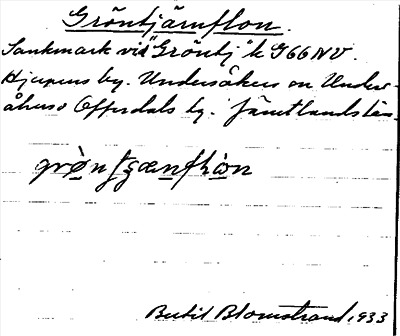 Gröntjärnflon.
Sankmark vid "Gröntj" k G66 NV.
Hjerpens by. Undersåkers sn Under-
såkers o Offerdals tg. Jämtlands län.
Bertil Blomstrand, 1933